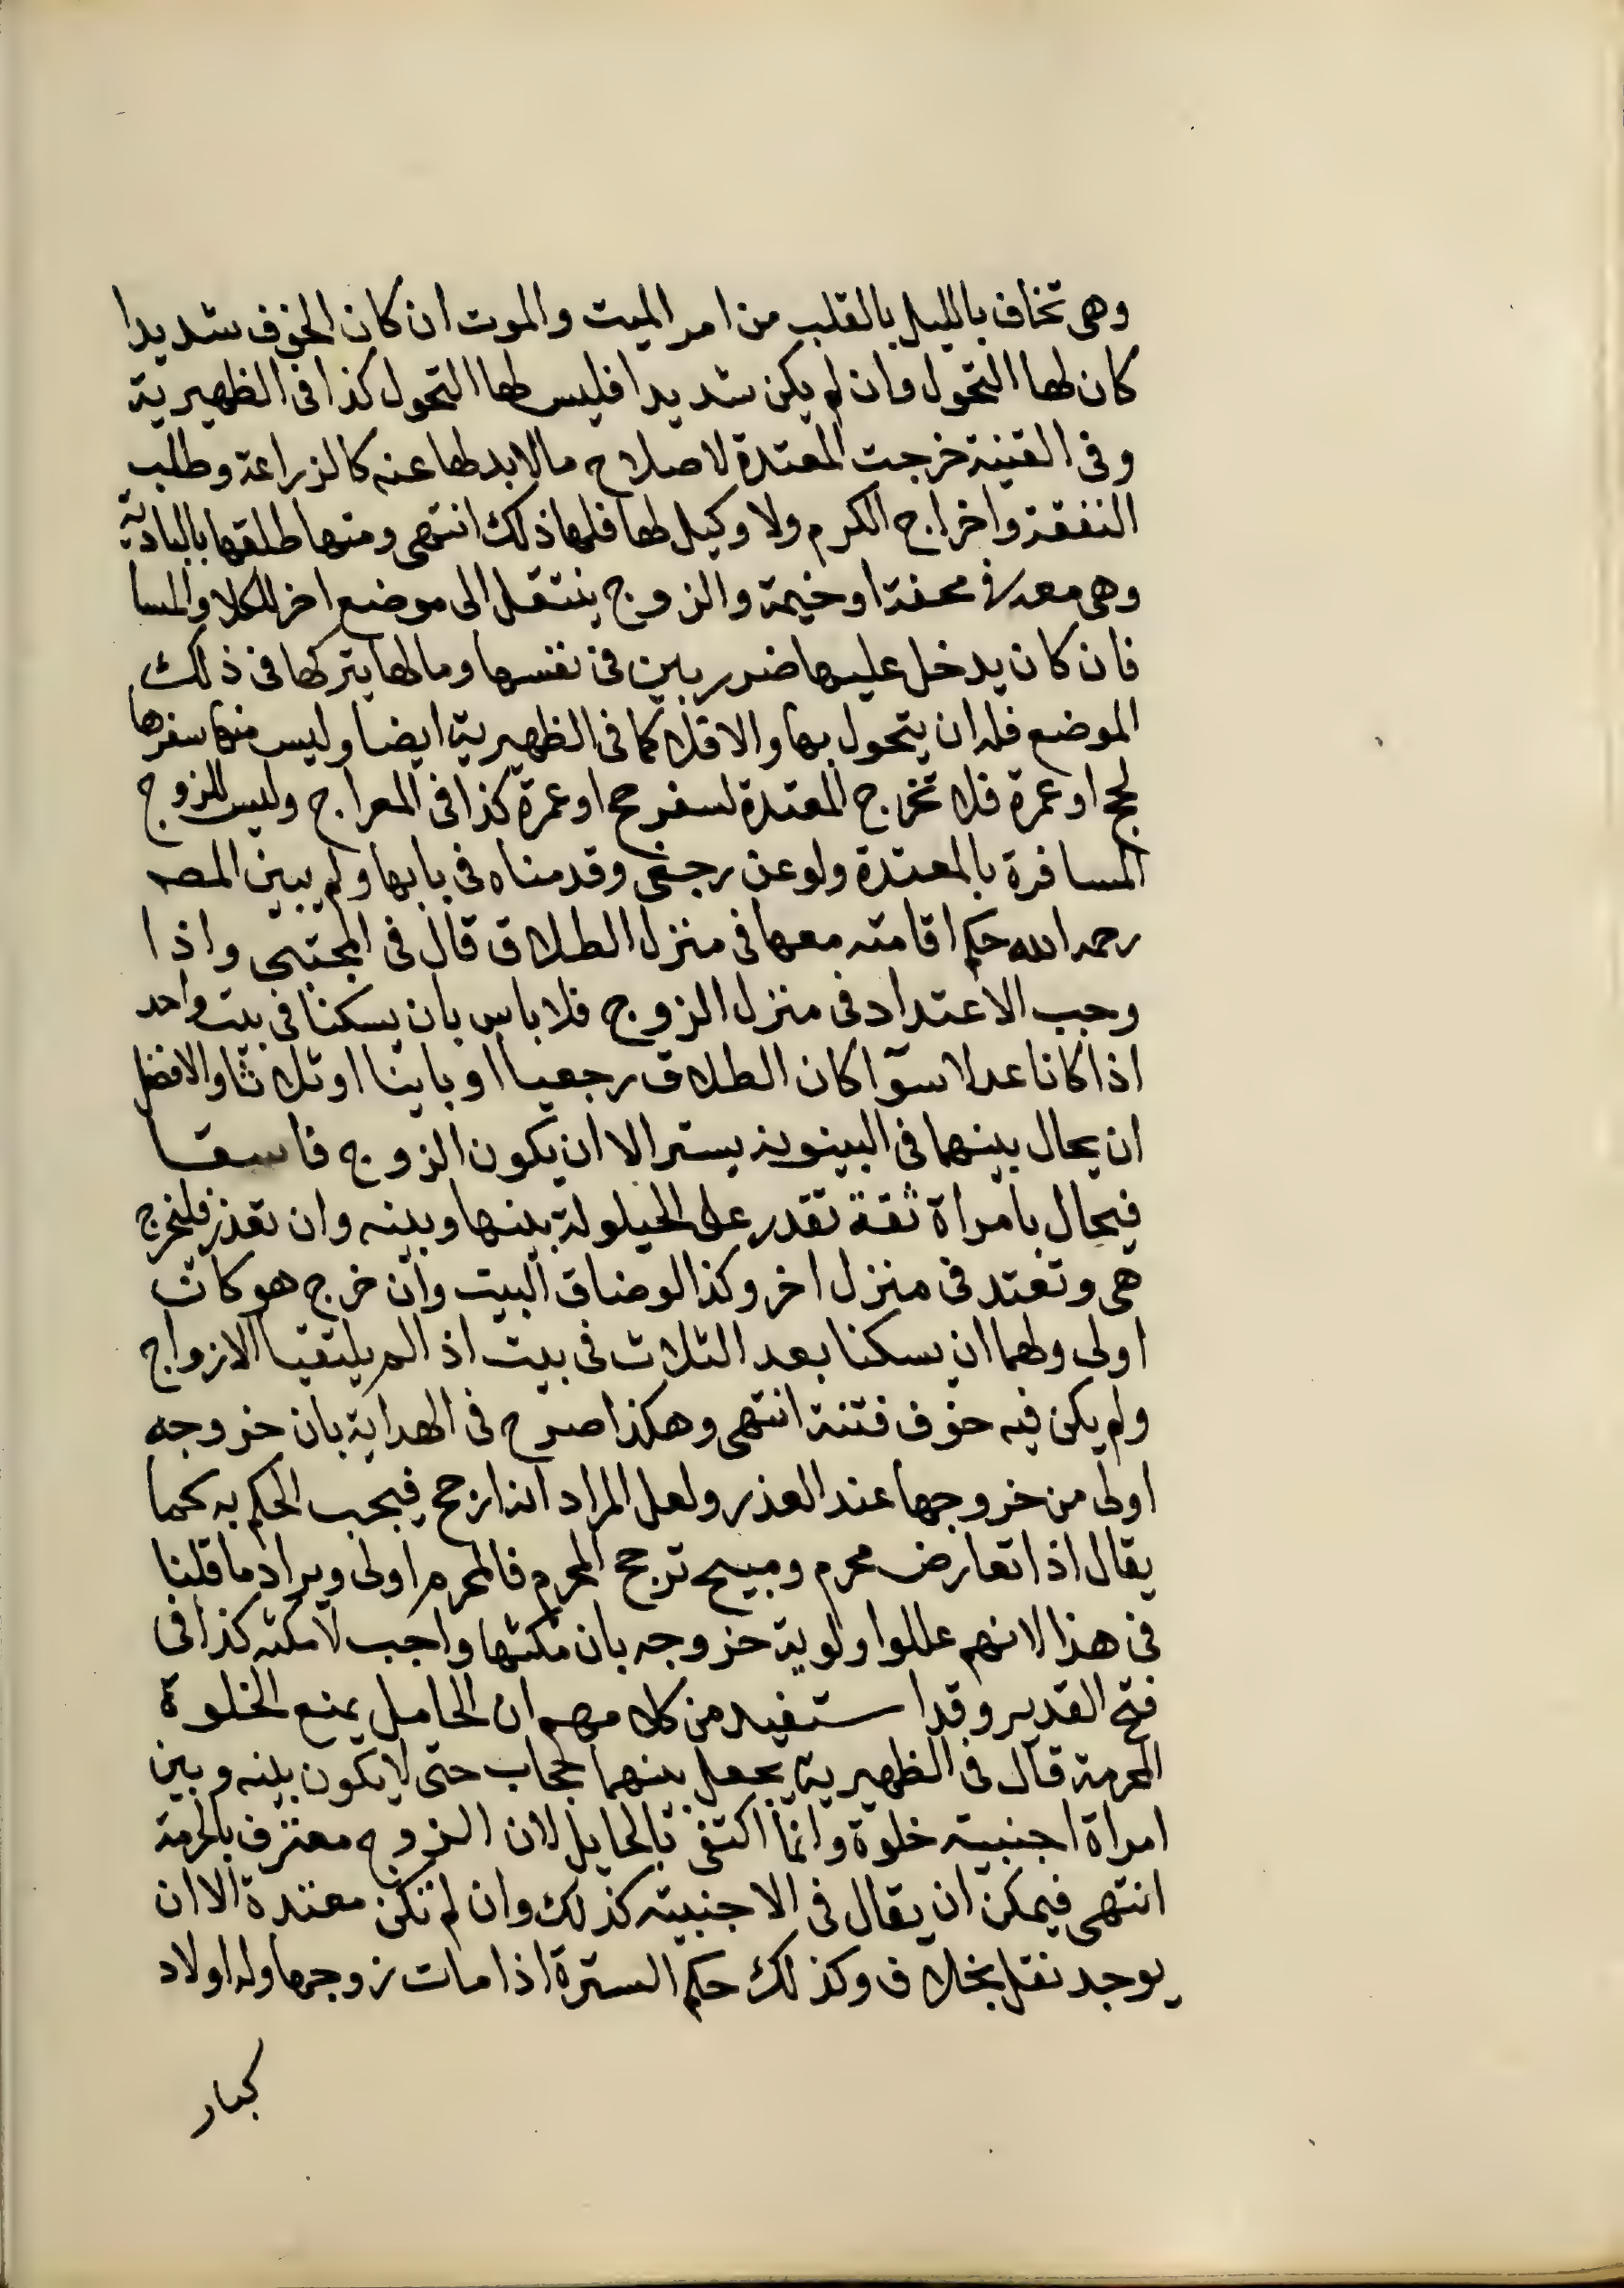 وهى تخاف بالليل بالقلب من امر الميت والموت ان كان الخوف شديدا
كان لها التحول وان لم يكن شديدا فليس لها التحول كذا فى الظهيرية
وفى القنية خرجت المعتدة لاصلاح مالابد لها عنه كالزراعة وطلب
النفقة واخراج الكرم ولا وكيل لها فلها ذلك انتهى ومنها طلقها بالبادية
وهى معه فى محفة او خيمة والزوج ينتقل الى موضع اخر للكلا والما
فان كان يدخل عليها ضرر بين فى نفسها ومالها يتركها فى ذلك
الموضع فله ان يتحول بها والا فلا كما فى الظهيرية ايضا وليس منها سفرها
لحج او عمرة فلا تخرج المعتدة لسفر حج او عمرة كذا فى المعراج وليس للزوج
المسافرة بالمعتدة ولو عن رجعى وقدمناه فى بابها ولم يبين المصـ
رحمه الله حكم اقامته معها فى منزل الطلاق قال فى المجتبى واذا
وجب الاعتداد فى منزل الزوج فلا باس بان يسكنا فى بيت واحد
اذا كانا عدلا سوآ كان الطلاق رجعيا او باينا او ثلاثا والافضل
ان يحال بينهما فى البينونة بستر الا ان يكون الزوج فاسقا
فيحال بامراة ثقة تقدر على الحيلولة بينها وبينه وان تعذر فلتخرج
هى وتعتد فى منزل اخر وكذا لو ضاق البيت وان خرج هو كان
اولى ولهما ان يسكنا بعد الثلاث فى بيت اذا لم يلتقيا الازواج
ولم يكن فيه خوف فتنة انتهى وهكذا صرح فى الهداية بان خروجه
اولى من خروجها عند العذر ولعل المراد انه ارجح فيجب الحكم به كما
يقال اذا تعارض محرم ومبيح ترجح المحرم فالمحرم اولى ويراد ما قلنا
فى هذا لانهم عللوا ولوية خروجه بان مكثها واجب لا مكثه كذا فى
فتح القدير وقد استفيد من كلامهم ان الحامل يمنع الخلوة
المحرمة قال فى الظهيرية يجعل بينهما حجاب حتى لا يكون بينه وبين
امراة اجنبية خلوة وانما اكتفى بالحايل لان الزوج معترف بالحرمة
انتهى فيمكن ان يقال فى الاجنبية كذلك وان لم تكن معتدة الا ان
يوجد نقل بخلاف وكذلك حكم السترة اذا مات زوجها وله اولاد
كبار